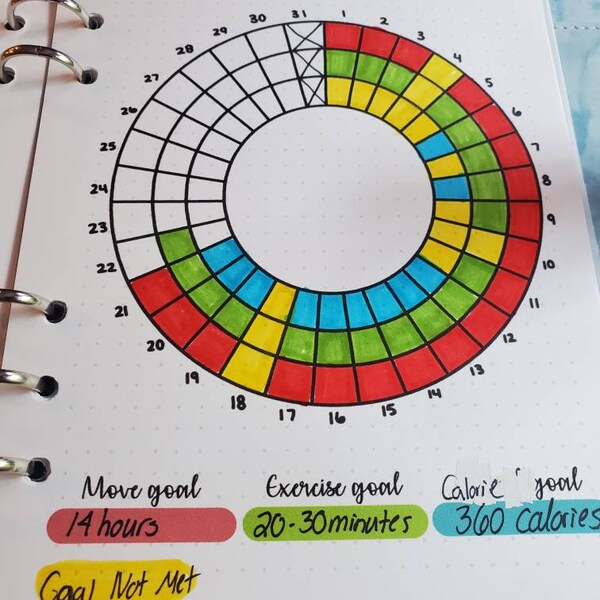 1
2
3
4
5
6
7
8
9
10
11
12
13
14
15
16
17
18
19
20
21
22
23
24
25
26
27
28
29
30
31
Move goal
14 hours
Exercise goal
20-30 minutes
Calorie goal
360 calories
Goal Not Met